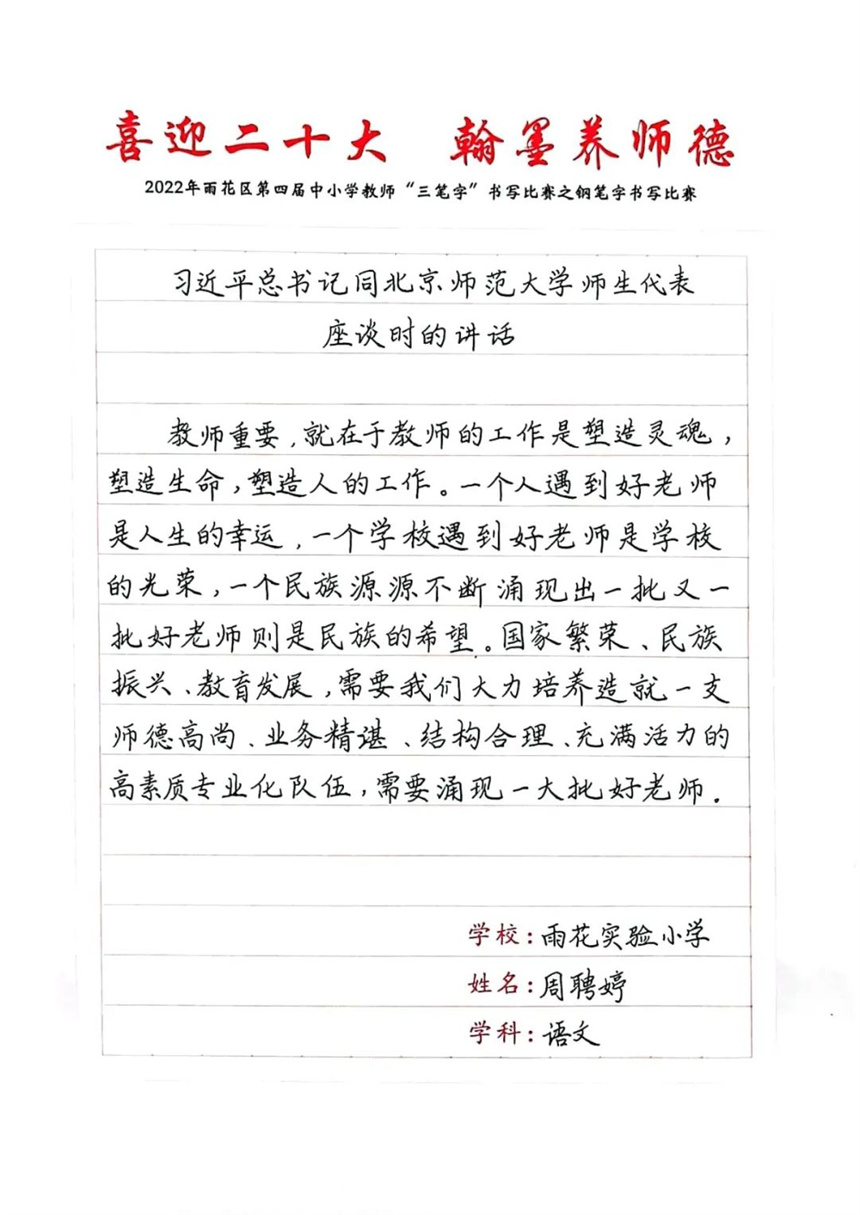 喜迎二十大 翰墨养师德
2022年雨花区第四届中小学教师“三笔字”书写比赛之钢笔字书写比赛
习近平总书记同北京师范大学师生代表
座谈时的讲话
教师重要,就在于教师的工作是塑造灵魂,
塑造生命,塑造人的工作。一个人遇到好老师
是人生的幸运,一个学校遇到好老师是学校
的光荣,一个民族源源不断涌现出一批又一
批好老师则是民族的希望。国家繁荣、民族
振兴、教育发展,需要我们大力培养造就一支
师德高尚、业务精谌、结构合理、充满活力的
高素质专业化队伍,需要涌现一大批好老师.
学校:雨花实验小学
姓名:周聘婷
学科:语文